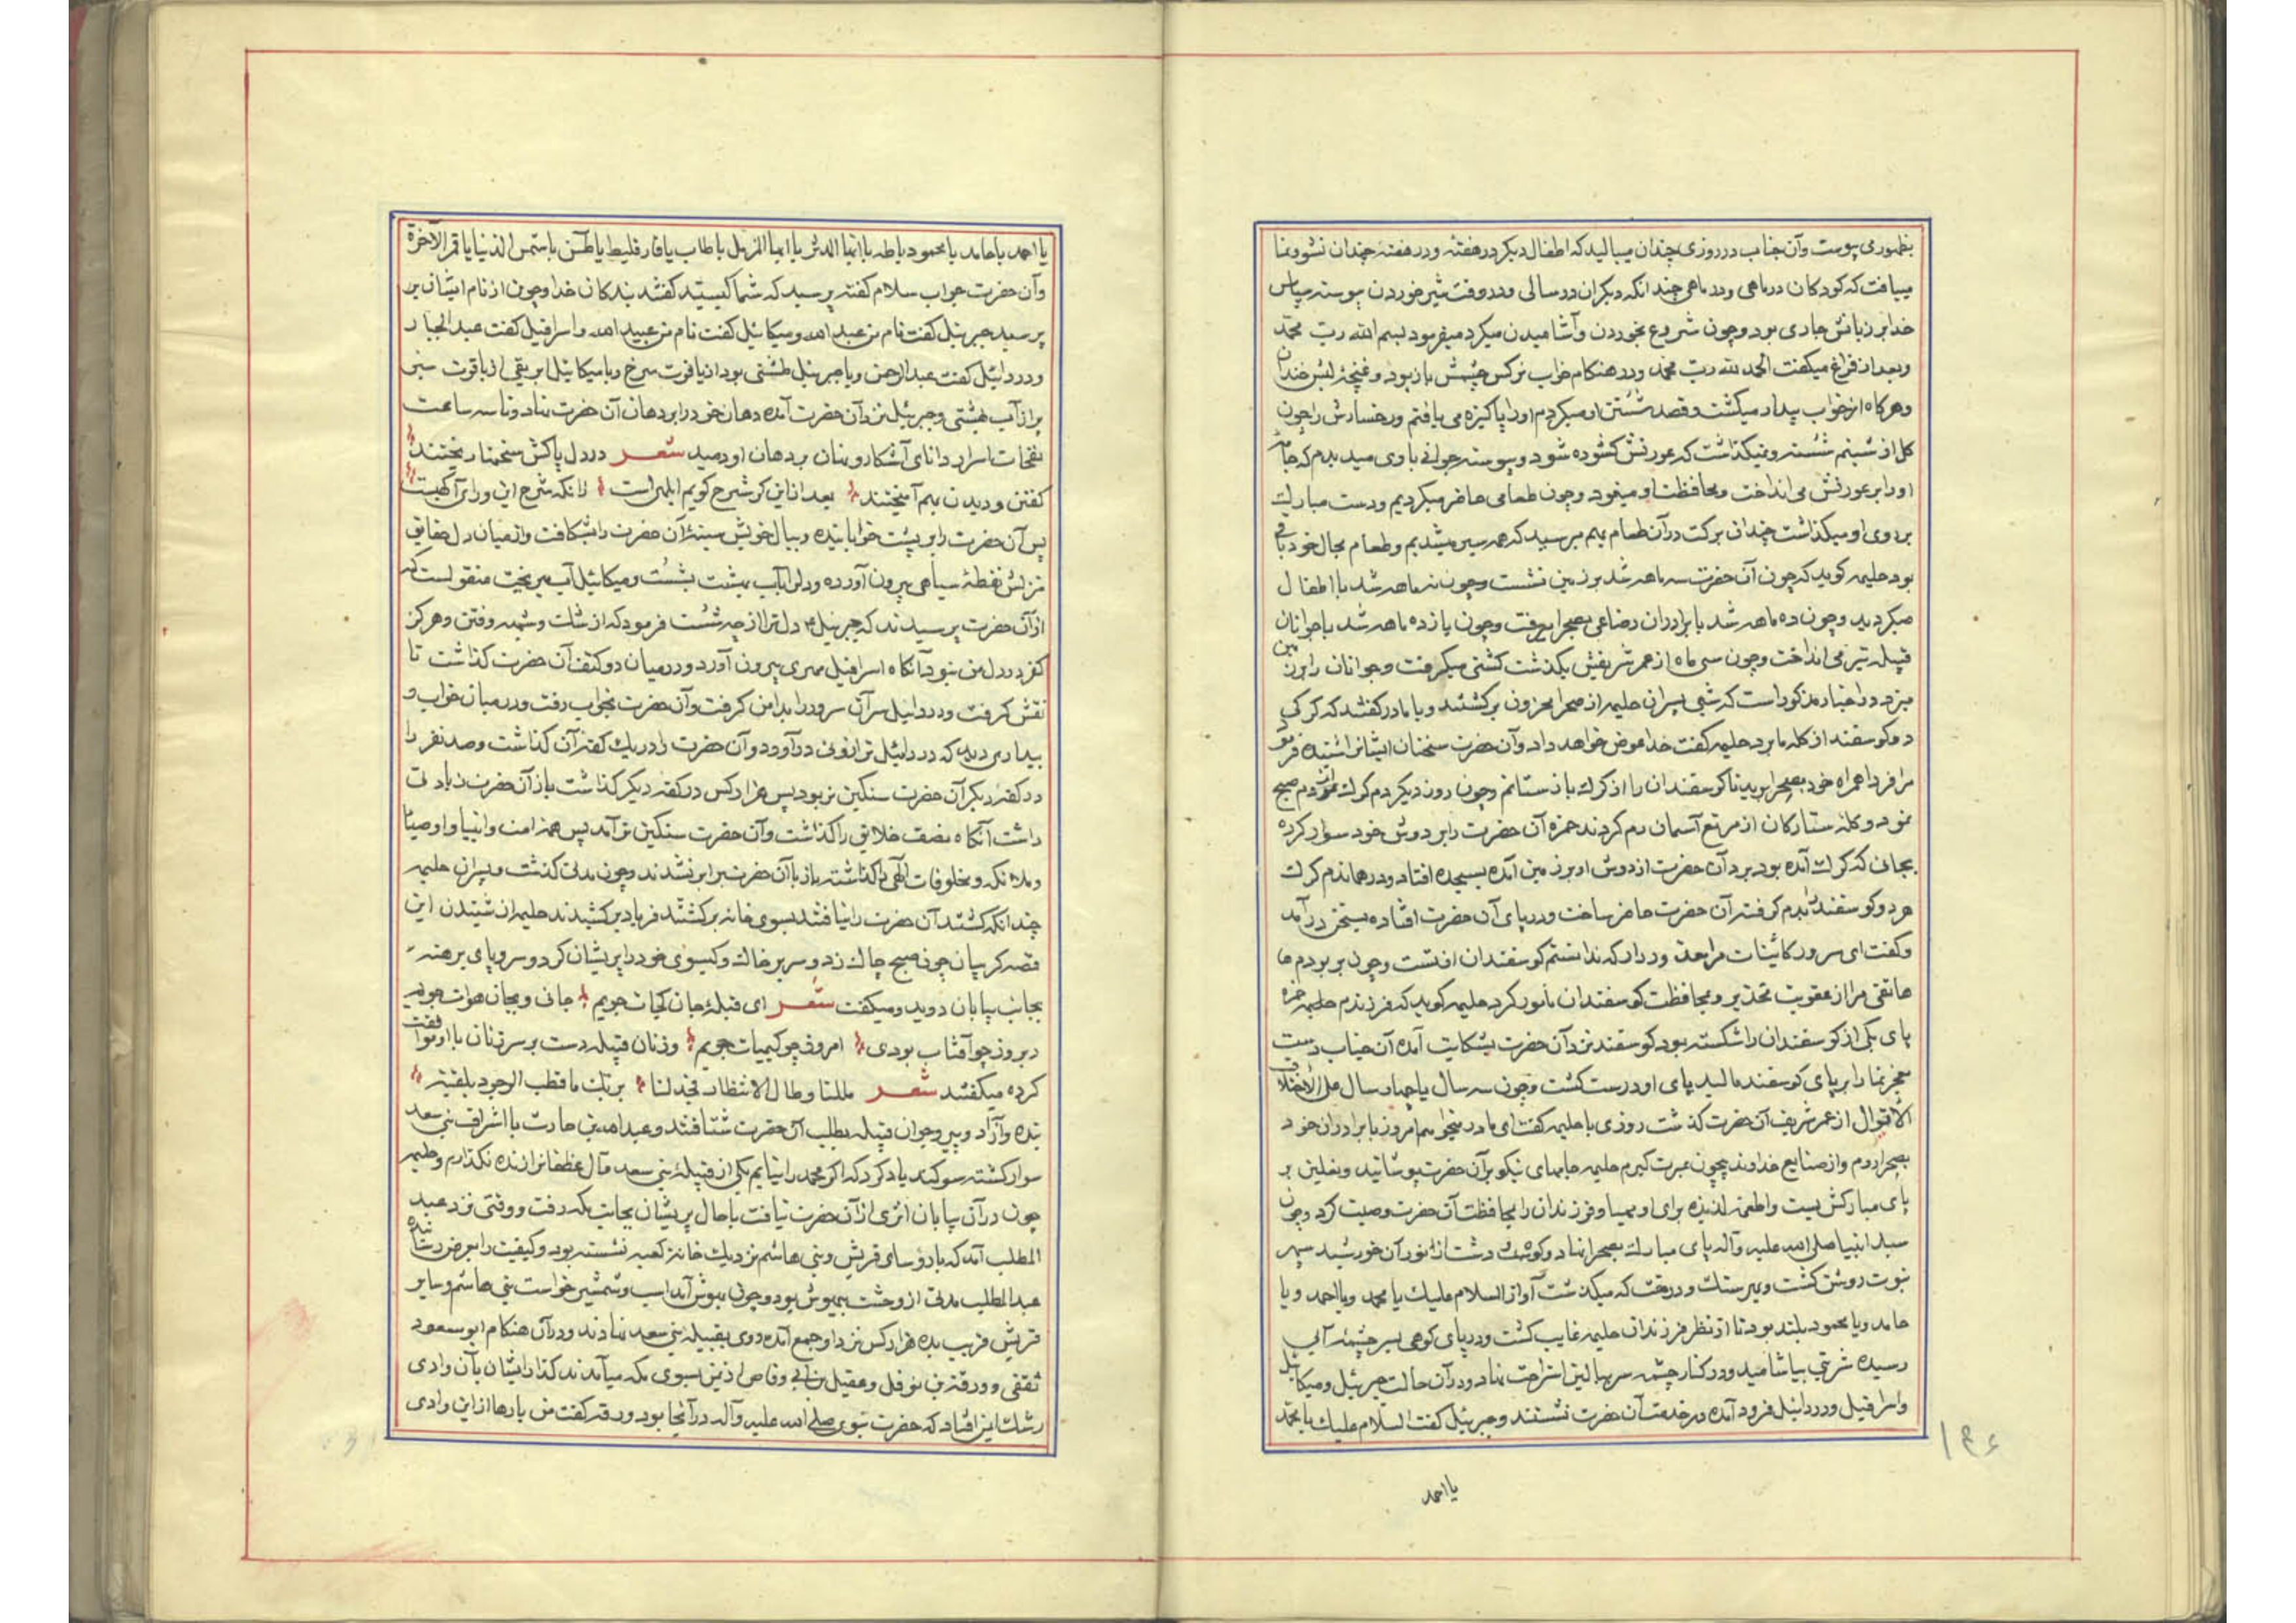 بظهور می پیوست و آن جناب در روزی چندان میبالید که اطفال دیکر در هفته و در هفته چندان نشو و نما
مییافت که کودکان در ماهی و در ماهی چندانکه دیکران در سالی و در وقت شیر خوردن پیوسته سپاس
خدا بر زبانش جاری بود و چون شروع بخوردن و آشامیدن میکرد میفرمود بسم الله رب محمد
و بعد از فراغ میکفت الحمد لله رب محمد و در هنکام خواب نرکس چشمش باز بود و غنچهٔ لبش خندان
و هرکاه از خواب بیدار میکشت و قصد شستن او میکردم او را پاکیزه می یافتم و رخسارش را چون
کل از شبنم شسته و نمیکذاشت که عورتش کشوده شود و پیوسته جوانی با وی میدیدم که جامه
او را بر عورتش می انداخت و محافظت او مینمود و چون طعامی حاضر میکردیم و دست مبارک
بر روی او میکذاشت چندان برکت در آن طعام بهم میرسید که همه سیر میشدیم و طعام بحال خود باقی
بود حلیمه کوید که چون آن حضرت سه ماهه شد بر زمین نشست و چون نه ماهه شد با اطفال
میکردید و چون ده ماهه شد با برادران رضاعی بصحرا میرفت و چون یازده ماهه شد با جوانان
قبیله تیر می انداخت و چون سی ماه از عمر شریفش بکذشت کشتی میکرفت و جوانان را بر زمین
میزد و در اخبار مذکور است که شبی پسران حلیمه از صحرا محزون برکشتند و با مادر کفتند که کرکی
دو کوسفند از کله ما برد حلیمه کفت خدا عوض خواهد داد و آن حضرت سخنان ایشانرا شنیده فرمود
مرا فردا همراه خود بصحرا برید تا کوسفندان را از کرک باز ستانم و چون روز دیکر دم کرک نمودم صبح
نمود و کله ستارکان از مرتع آسمان رم کردند حمزه آن حضرت را بر دوش خود سوار کرده
بجائی که کرک آمده بود برد آن حضرت از دوش او بر زمین آمده بسجده افتاد و در همان دم کرک
هر دو کوسفند را بدم کرفته آن حضرت حاضر ساخت و در پای آن حضرت افتاده بسخن درآمد
و کفت ای سرور کاینات مرا معذور دار که ندانستم کوسفندان از تست و چون بر بودم ها
هاتفی مرا از عقوبت تحذیر و بمحافظت کوسفندان مأمور کرد حلیمه کوید که فرزندم حمزه
پای یکی از کوسفندان را شکسته بود کوسفند نزد آن حضرت بشکایت آمده آن جناب دست
معجز نما را بر پای کوسفند مالید پای او درست کشت و چون سه سال یا چهار سال علی الاختلاف
الاقوال از عمر شریف آن حضرت کذشت روزی با حلیمه کفت ای مادر میخواهم امروز با برادران خود
بصحرا روم و از صنایع خداوند بیچون عبرت کیرم حلیمه جامهای نیکو بر آن حضرت پوشانید و نعلین بر
پای مبارکش بست و اطعمهٔ لذیذه برای او مهیا و فرزندان را بمحافظت آن حضرت وصیت کرد و چون
سید انبیا صلی الله علیه و آله پای مبارک بصحرا نهاد و کوه و دشت از نور آن خورشید سپهر
نبوت روشن کشت و بهر سنک و درخت که میکذشت آواز السلام علیک یا محمد و یا احمد و یا
حامد و یا محمود بلند بود تا از نظر فرزندان حلیمه غایب کشت و در پای کوهی بسر چشمهٔ آبی
رسیده شربتی بیاشامید و در کنار چشمه سر ببالین استراحت نهاد و در آن حالت جبرئیل و میکائیل
و اسرافیل و دردائیل فرود آمده در خدمت آن حضرت نشستند و جبرئیل کفت السلام علیک یا محمد
یا احمد
۱۴۶
یا احمد یا حامد یا محمود یا طه یا ایها المدثر یا ایها المزمل یا طاب یا فارقلیط یا طس یا شمس الدنیا یا قمر الآخرة
و آن حضرت جواب سلام کفته پرسید که شما کیستید کفتند بندکان خدا و چون از نام ایشان بر
پرسید جبرئیل کفت نام من عبد الله و میکائیل کفت نام من عبید الله و اسرافیل کفت عبد الجبار
و دردائیل کفت عبد الرحمن و با جبرئیل طشتی بود از یاقوت سرخ و با میکائیل ابریقی از یاقوت سبز
پر از آب بهشتی و جبرئیل نزد آن حضرت آمده دهان خود را بر دهان آن حضرت نهاد و تا سه ساعت
نفحات اسرار دانای آشکار و نهان بر دهان او دمید شعر در دل پاکش سخنها ریختند
کفتن و دیدن بهم آمیختند بعد از این کر شرح کویم ابلهی است زانکه شرح این ورای آکهیست
پس آن حضرت را بر پشت خوابانیده و ببال خویش سینهٔ آن حضرت را بشکافت و از میان دل حقایق
منزلش نقطهٔ سیاهی بیرون آورده و دلرا بآب بهشت بشست و میکائیل آب میریخت منقولست که
از آن حضرت پرسیدند که جبرئیل دل ترا از چه شست فرمود که از شک و شبهه و فتن و هرکز
کفر در دل من نبود آنکاه اسرافیل مهری بیرون آورد و در میان دو کتف آن حضرت کذاشت تا
نقش کرفت و دردائیل سر آن سرور را بدامن کرفت و آن حضرت بخواب رفت و در میان خواب و
بیداری دید که دردائیل ترازوئی درآورد و آن حضرت را در یک کفهٔ آن کذاشت و صد نفر را
در کفهٔ دیکر آن حضرت سنکین تر بود پس هزار کس در کفه دیکر کذاشت باز آن حضرت زیادتی
داشت آنکاه نصف خلایق را کذاشت و آن حضرت سنکین تر آمد پس همهٔ امت و انبیا و اوصیا
و ملائکه و مخلوقات الهی را کذاشته باز با آن حضرت برابر نشدند و چون مدتی کذشت و پسران حلیمه
چندانکه کشتند آن حضرت را نیافتند بسوی خانه برکشتند فریاد برکشیدند حلیمه از شنیدن این
قصه کریبان چون صبح چاک زد و سر بر خاک و کیسوی خود را پریشان کرد و سر و پای برهنه
بجانب بیابان دوید و میکفت شعر ای قبلهٔ جان کجات جویم جانی و بجان هوات جویم
دیروز چو آفتاب بودی امروز چو کیمیات جویم و زنان قبیله دست بر سر زنان با او موافقت
کرده میکفتند شعر مللنا و طال الانتظار فجد لنا بربک ما قطب الوجود بلقیه
بنده و آزاد و پیر و جوان قبیله بطلب آن حضرت شتافتند و عبد الله بن حارث با اشراف بنی سعد
سوار کشته سوکند یاد کرد که اکر محمد را نیابیم یکی از قبیلهٔ بنی سعد و آل غطفانرا زنده نکذارم و حلیمه
چون در آن بیابان اثری از آن حضرت نیافت با حال پریشان بجانب مکه رفت و وقتی نزد عبد
المطلب آمد که با رؤسای قریش و بنی هاشم نزدیک خانهٔ کعبه نشسته بود و کیفیت را بعرض رسانیده
عبد المطلب مدتی از وحشت بیهوش بود و چون بهوش آمد اسب و شمشیر خواست بنی هاشم و سایر
قریش قریب بده هزار کس نزد او جمع آمده روی بقبیله بنی سعد نهادند و در آن هنکام ابو سعود
ثقفی و ورقة بن نوفل و عقیل بن ابی وقاص از یمن بسوی مکه میآمدند کذار ایشان بآن وادی
رشک ایمن افتاد که حضرت نبوی صلی الله علیه و آله در آنجا بود ورقه کفت من بارها از این وادی